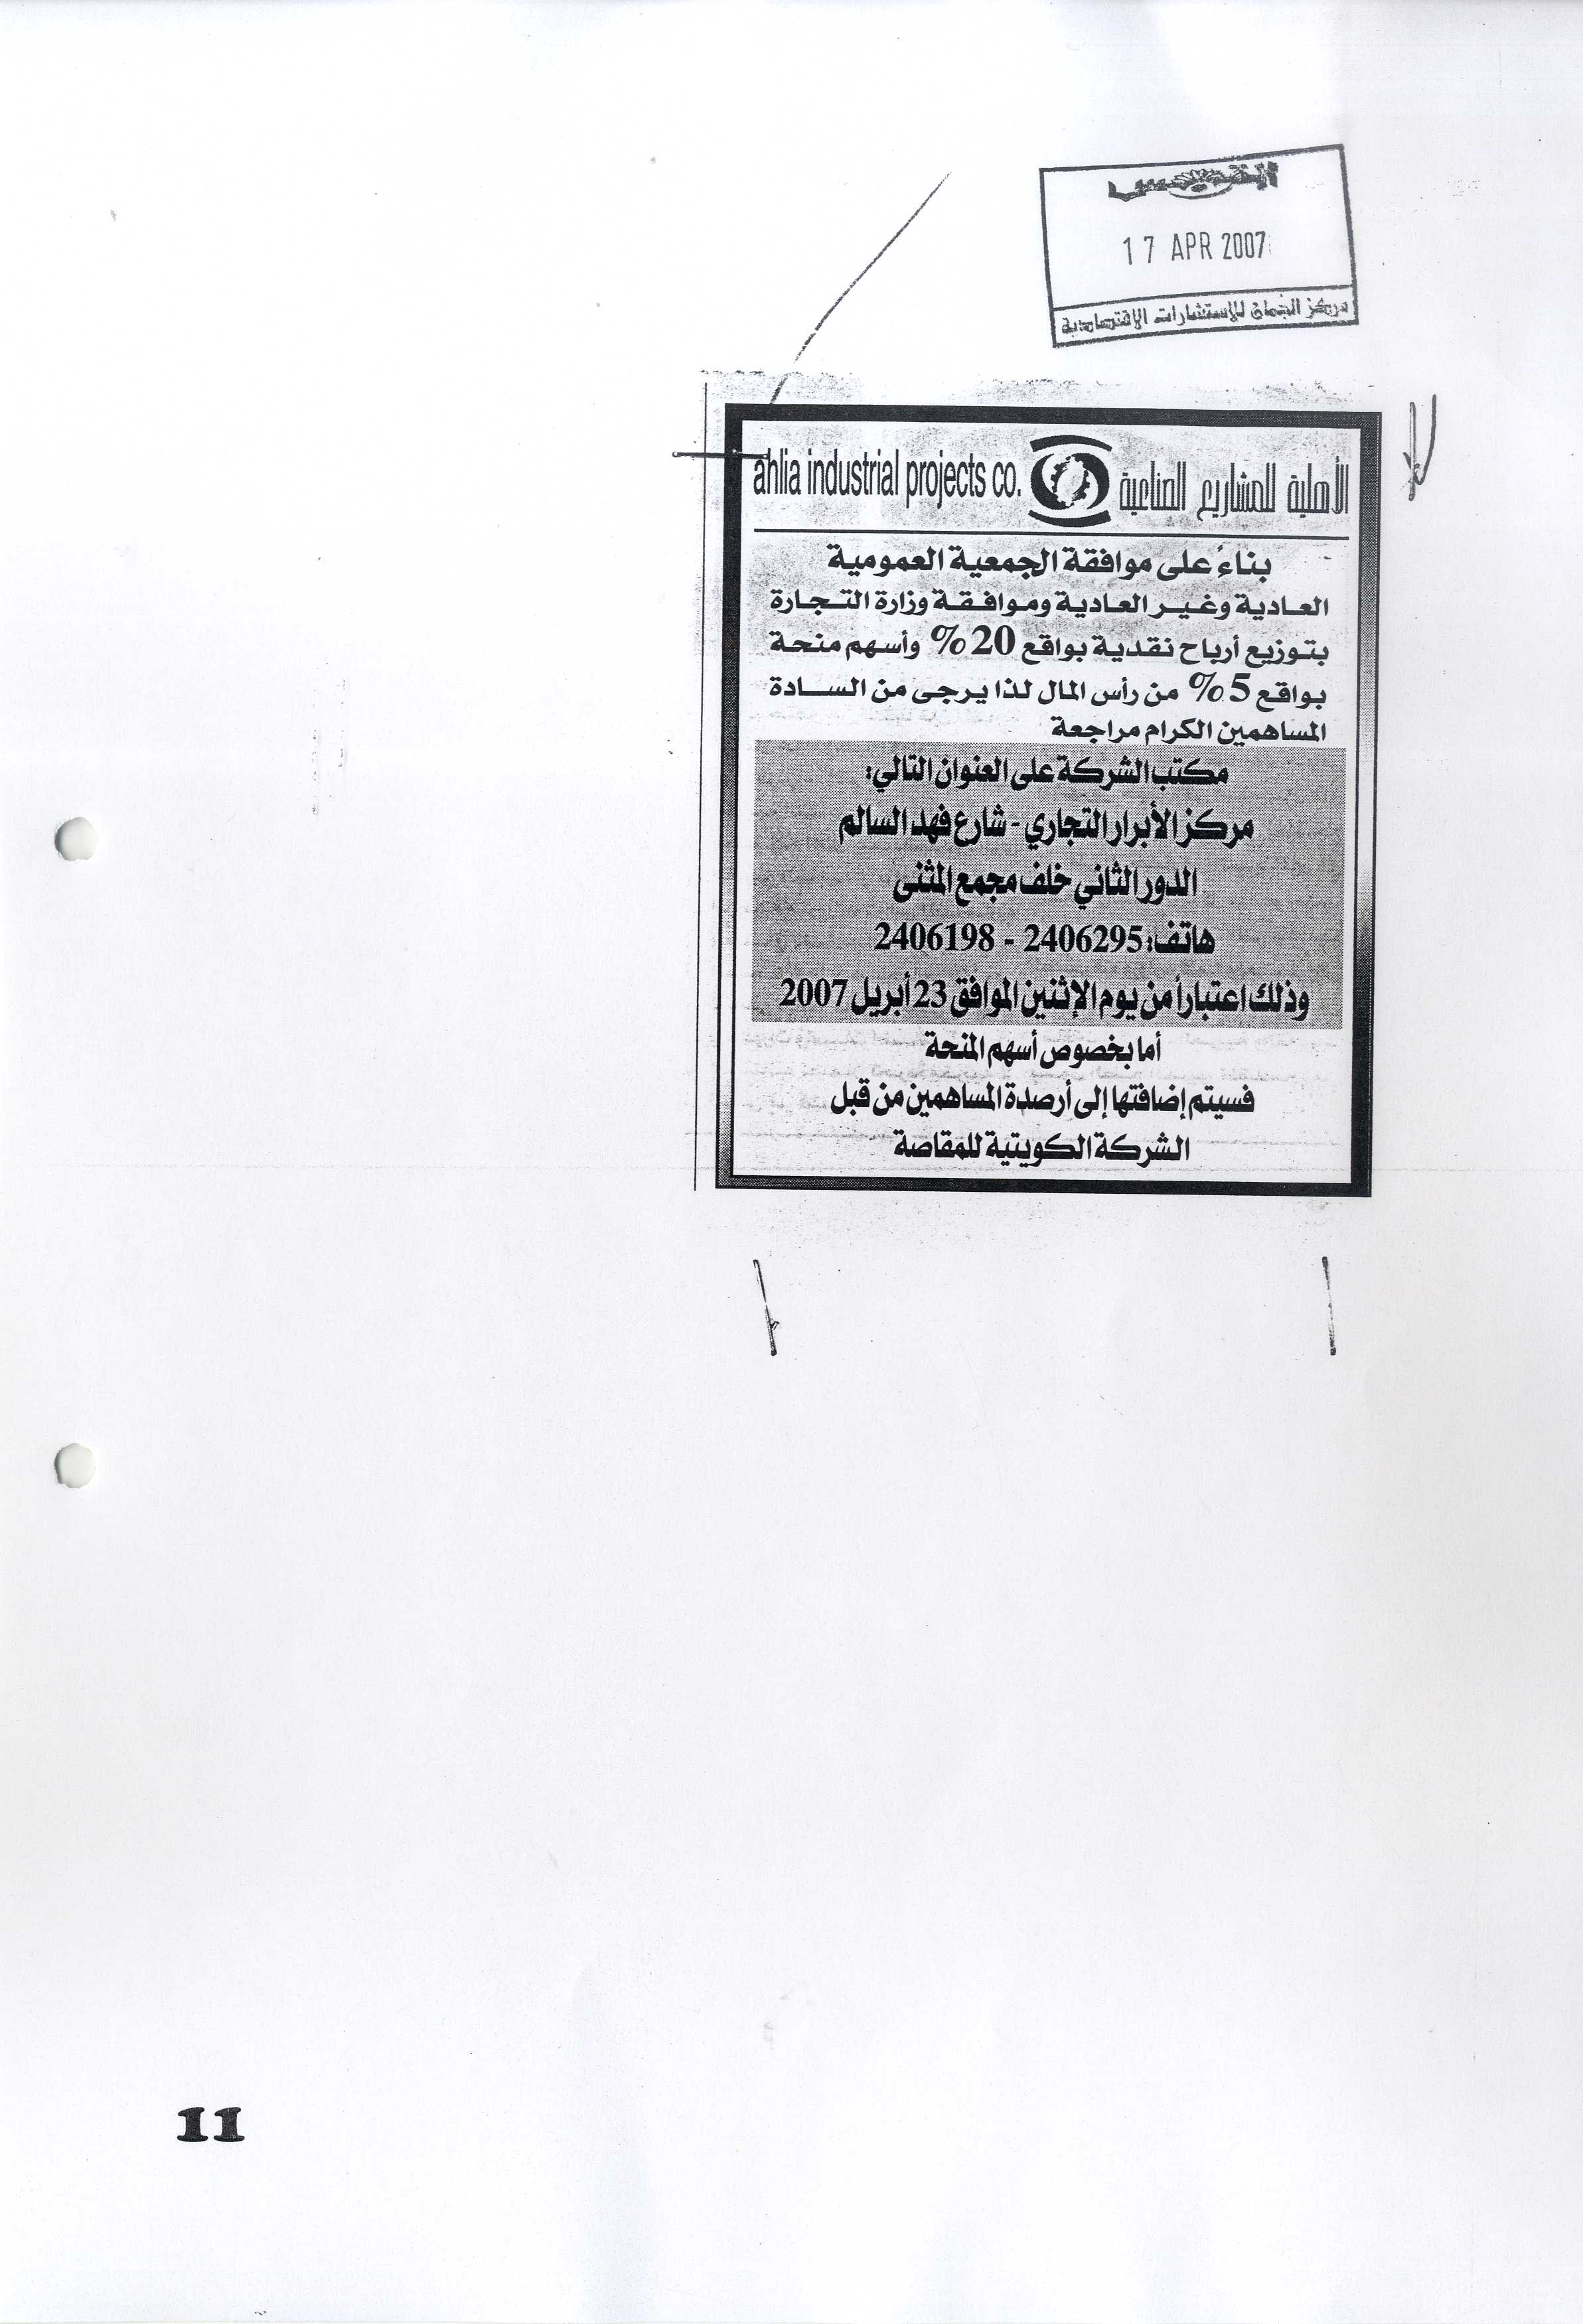 القبس
17 APR 2007
مركز الجمان للاستشارات الاقتصادية
الأهلية للمشاريع الصناعية ahlia industrial projects co.
بناءً على موافقة الجمعية العمومية
العادية وغير العادية وموافقة وزارة التجارة
بتوزيع أرباح نقدية بواقع 20% وأسهم منحة
بواقع 5% من رأس المال لذا يرجى من السادة
المساهمين الكرام مراجعة
مكتب الشركة على العنوان التالي:
مركز الأبرار التجاري - شارع فهد السالم
الدور الثاني خلف مجمع المثنى
هاتف: 2406295 - 2406198
وذلك اعتباراً من يوم الإثنين الموافق 23 أبريل 2007
أما بخصوص أسهم المنحة
فسيتم إضافتها إلى أرصدة المساهمين من قبل
الشركة الكويتية للمقاصة
11